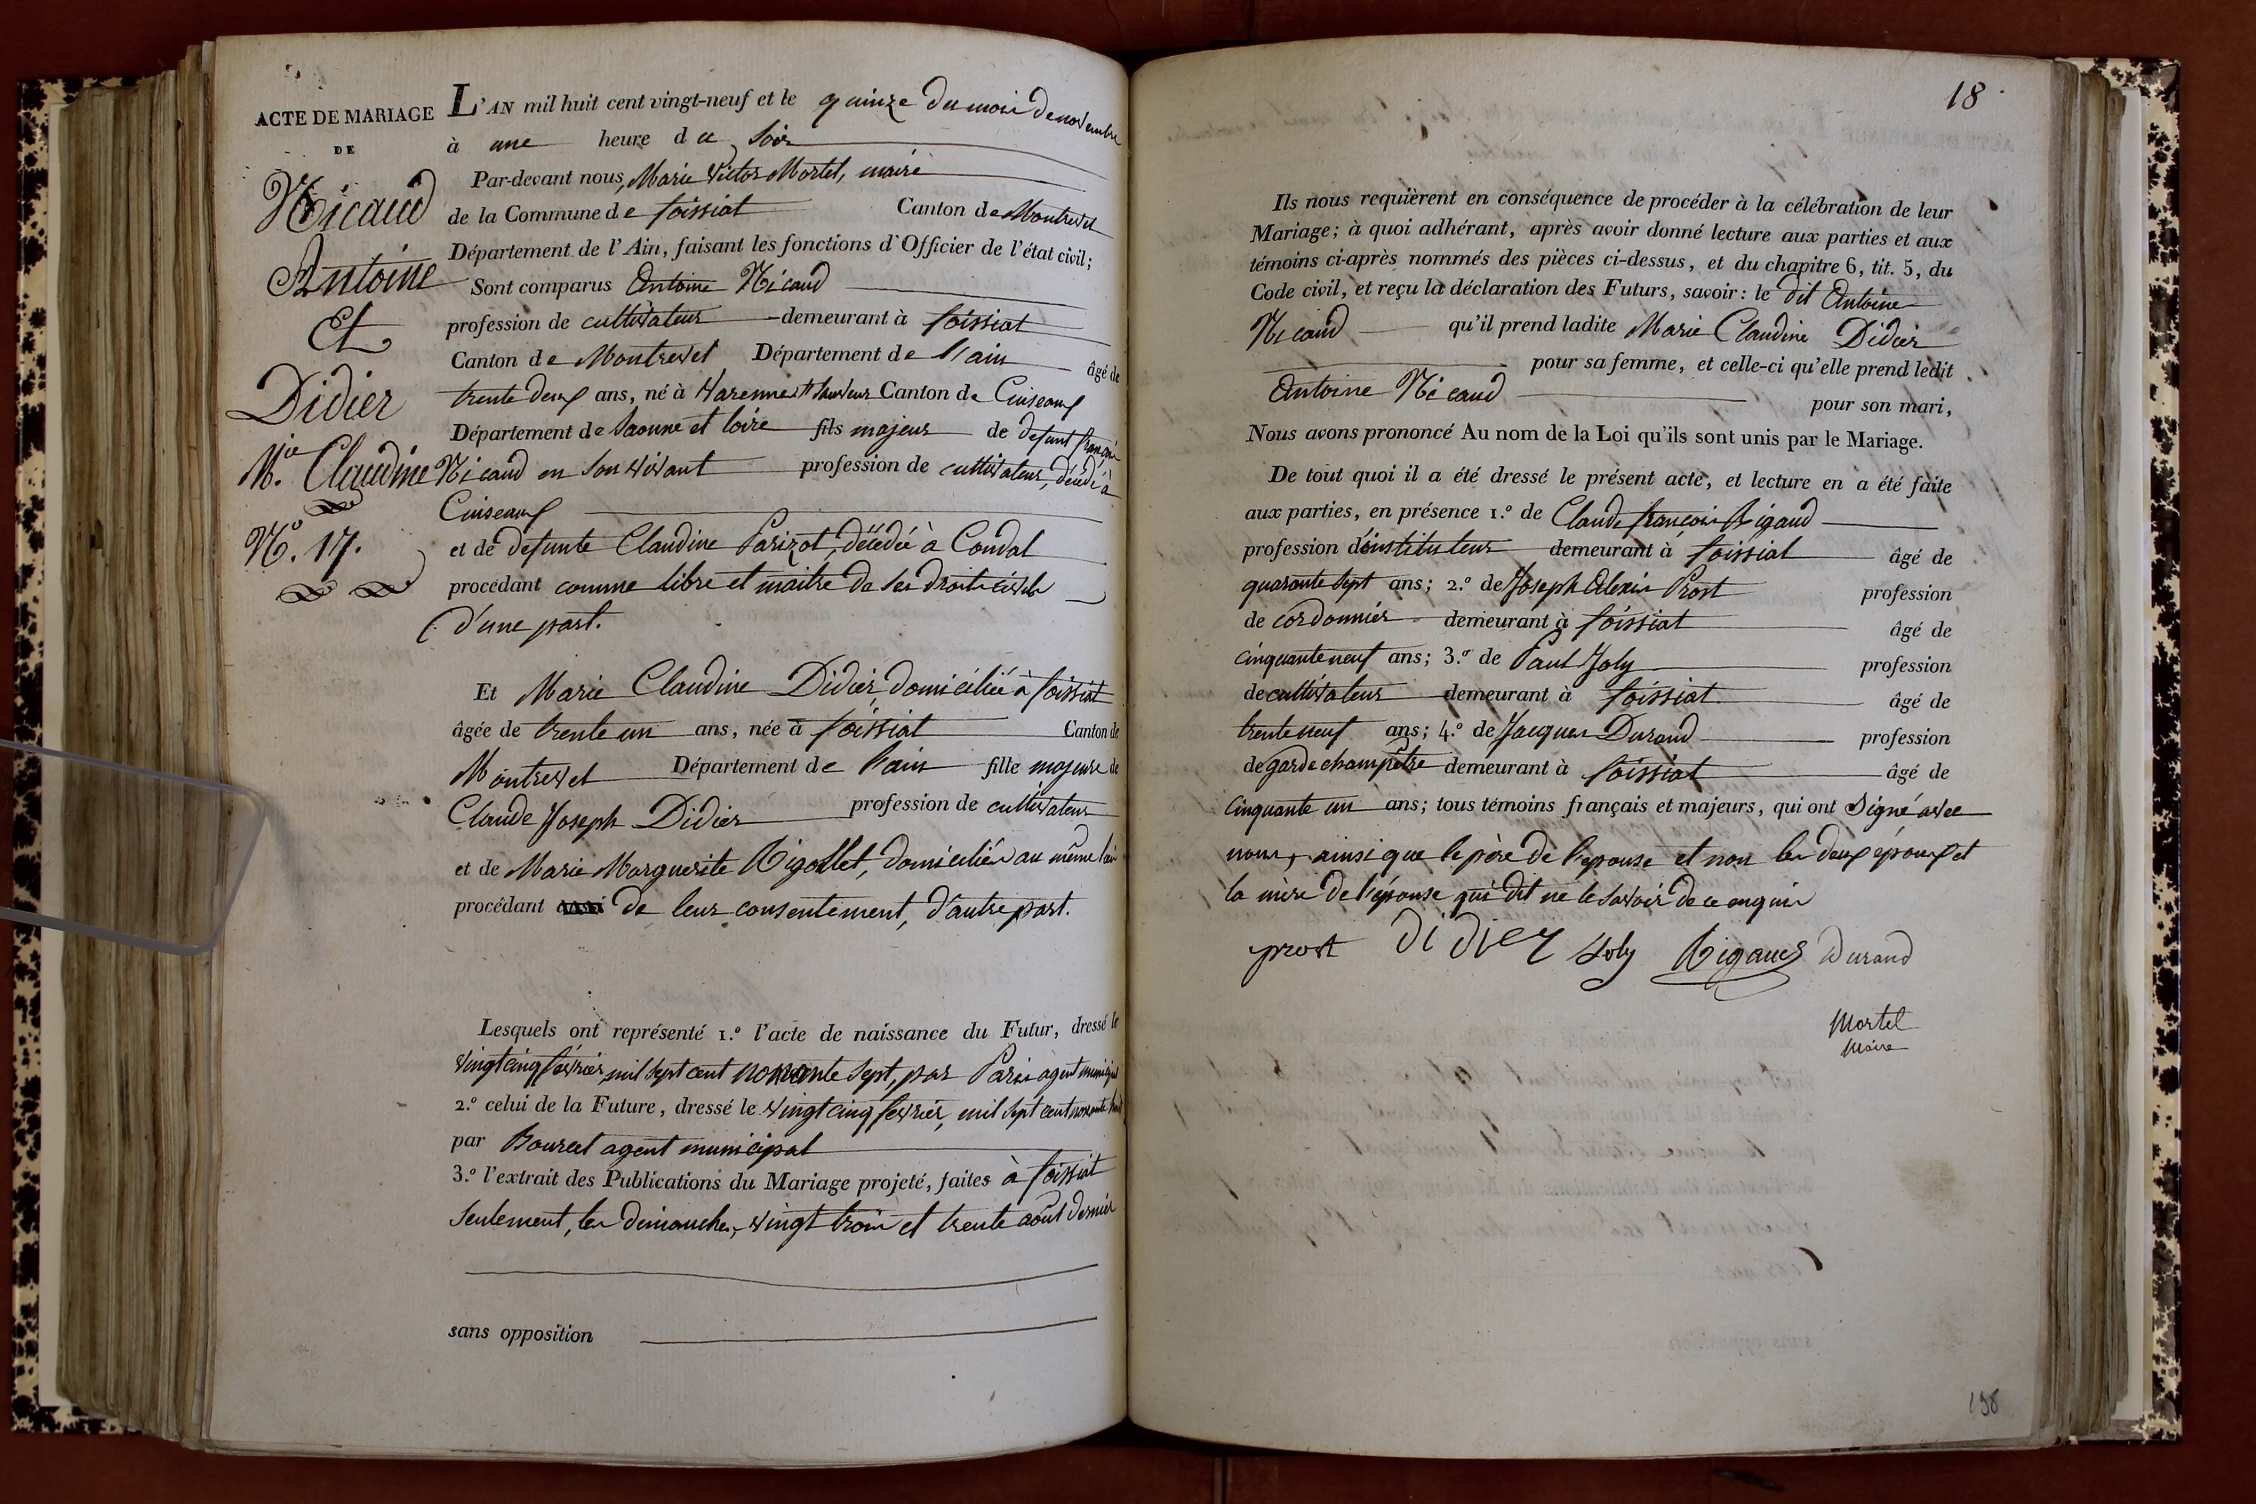 ACTE DE MARIAGE
DE
Nicaud
Antoine
Et
Didier
M.ie Claudine
N.o 17.
L'AN mil huit cent vingt-neuf et le quinze du mois de novembre
à une heure du soir
Par-devant nous, Marie Victor Mortel, maire
de la Commune de foissiat Canton de Montrevel
Département de l'Ain, faisant les fonctions d'Officier de l'état civil;
Sont comparus Antoine Nicaud
profession de cultivateur demeurant à foissiat
Canton de Montrevel Département de l'ain âgé de
trente deux ans, né à Varenne St Sauveur Canton de Cuiseaux
Département de Saonne et loire fils majeur de defunt françois
Nicaud en son vivant profession de cultivateur, décédé à
Cuiseaux
et de defunte Claudine Parizot, décédée à Condal
procédant comme libre et maitre de ses droits civils
d'une part.
Et Marie Claudine Didier, domiciliée à foissiat
âgée de trente un ans, née à foissiat Canton de
Montrevel Département de l'ain fille majeure de
Claude Joseph Didier profession de cultivateur
et de Marie Marguerite Rigollet, domiciliés au même lieu
procédant de leur consentement, d'autre part.
Lesquels ont représenté 1.o l'acte de naissance du Futur, dressé le
vingt cinq février mil sept cent nonante sept, par Paris agent municipal
2.o celui de la Future, dressé le vingt cinq fevrier, mil sept cent nonante huit
par Bourcet agent municipal
3.o l'extrait des Publications du Mariage projeté, faites à foissiat
seulement, les dimanches, vingt trois et trente août dernier
sans opposition
18
Ils nous requièrent en conséquence de procéder à la célébration de leur
Mariage; à quoi adhérant, après avoir donné lecture aux parties et aux
témoins ci-après nommés des pièces ci-dessus, et du chapitre 6, tit. 5, du
Code civil, et reçu la déclaration des Futurs, savoir: le dit Antoine
Nicaud qu'il prend ladite Marie Claudine Didier
pour sa femme, et celle-ci qu'elle prend ledit
Antoine Nicaud pour son mari,
Nous avons prononcé Au nom de la Loi qu'ils sont unis par le Mariage.
De tout quoi il a été dressé le présent acte, et lecture en a été faite
aux parties, en présence 1.o de Claude françois Rigaud
profession d'instituteur demeurant à foissiat âgé de
quarante sept ans; 2.o de Joseph Alexis Prost profession
de cordonnier demeurant à foissiat âgé de
cinquante neuf ans; 3.o de Paul Joly profession
de cultivateur demeurant à foissiat âgé de
trente neuf ans; 4.o de Jacques Durand profession
de garde champêtre demeurant à foissiat âgé de
cinquante un ans; tous témoins français et majeurs, qui ont signé avec
nous, ainsi que le père de l'epouse et non les deux époux et
la mère de l'épouse qui dit ne le savoir de ce enquis
prost didier Joly Rigaud Durand
Mortel
Maire
198